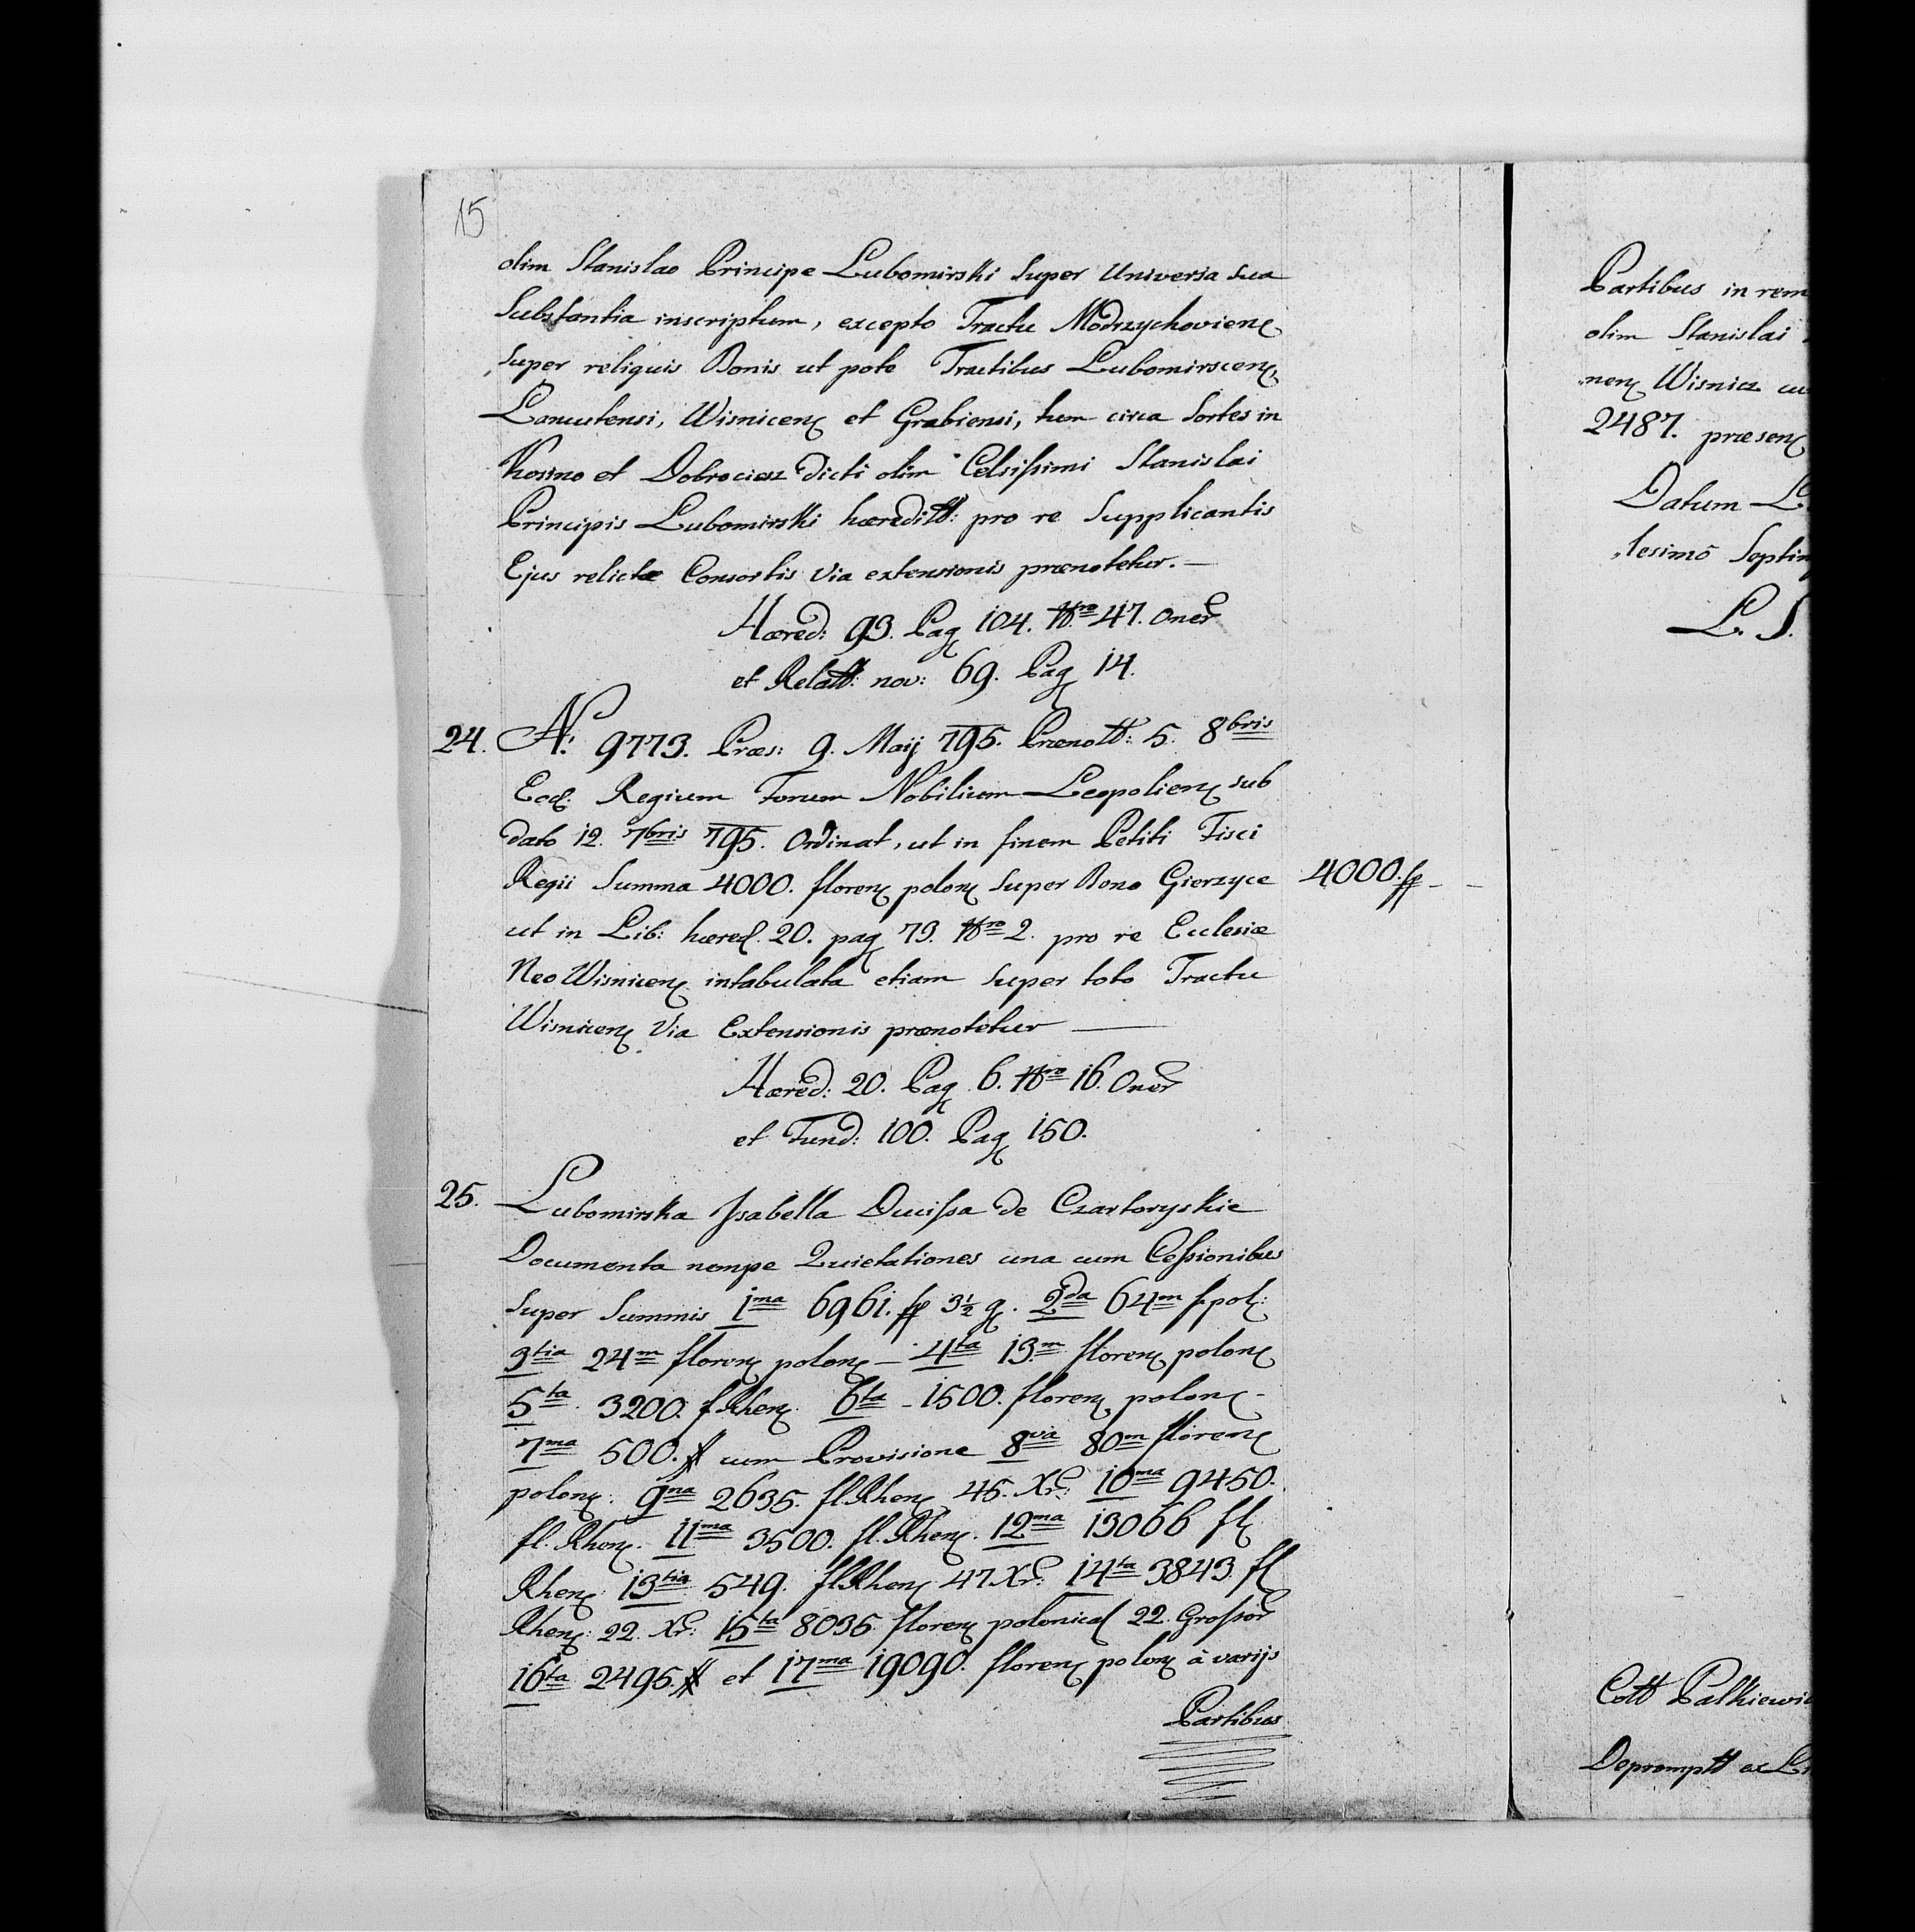 15
olim Stanislao Principe Lubomirski Super Universa sua
Substantia inscriptum, excepto Tractu Modrzychovien
Super reliquis Bonis ut pote Tractibus Lubomirscen,
Lancutensi, Wisnicen et Grabiensi, tum circa Sortes in
Kosino et Dobrociesz dicti olim Celsissimi Stanislai
Principis Lubomirski hæreditt: pro re Supplicantis
Ejus relictæ Consortis via extensionis prænotetur.—
Hæred: 93. Pag 104. Nro 47. Oner
et Relatt: nov: 69. Pag 14.
24. N: 9773. Præs: 9. Maij 795. Prænott: 5. 8bris
Ecd: Regium Forum Nobilium Leopolien sub
dato 12. 7bris 795. Ordinat, ut in finem Petiti Fisci
Regii Summa 4000. floren polon Super Bono Gierzyce 4000. fp
ut in Lib: hæred. 20. pag 79. Nro 2. pro re Ecclesiæ
Neo Wisnicen intabulata etiam Super toto Tractu
Wisnicen via Extensionis prænotetur —
Hæred: 20. Pag 6. Nro 16. Oner
et Fund: 100. Pag 150.
25. Lubomirska Isabella Ducissa de Czartoryskie
Documenta nempe Quietationes una cum Cessionibus
Super Summis 1ma 6961. fp 3½ g. 2da 64m f pol:
3tia 24m floren polon – 4ta 13m floren polon
5ta 3200. f Rhen. 6ta – 1500. floren polon –
7ma 500. # cum Provisione 8va 80m floren
polon: 9na 2635. fl. Rhen 45. Xr: 10ma 9450.
fl. Rhen. 11ma 3500. fl. Rhen. 12ma 13066 fl
Rhen: 13tia 549. fl Rhen 47 Xr: 14ta 3843. fl
Rhen: 22. Xr: 15ta 8035. floren polonical 22. Grossor
16ta 2495. # et 17ma 19090. floren polon à varijs
Partibus
Partibus in rem
olim Stanislai
nen Wisnicz cu
2487. præsen
Datum L
lesimo Septin
L. S.
Cott Palkiewic
Deprompt ex Li